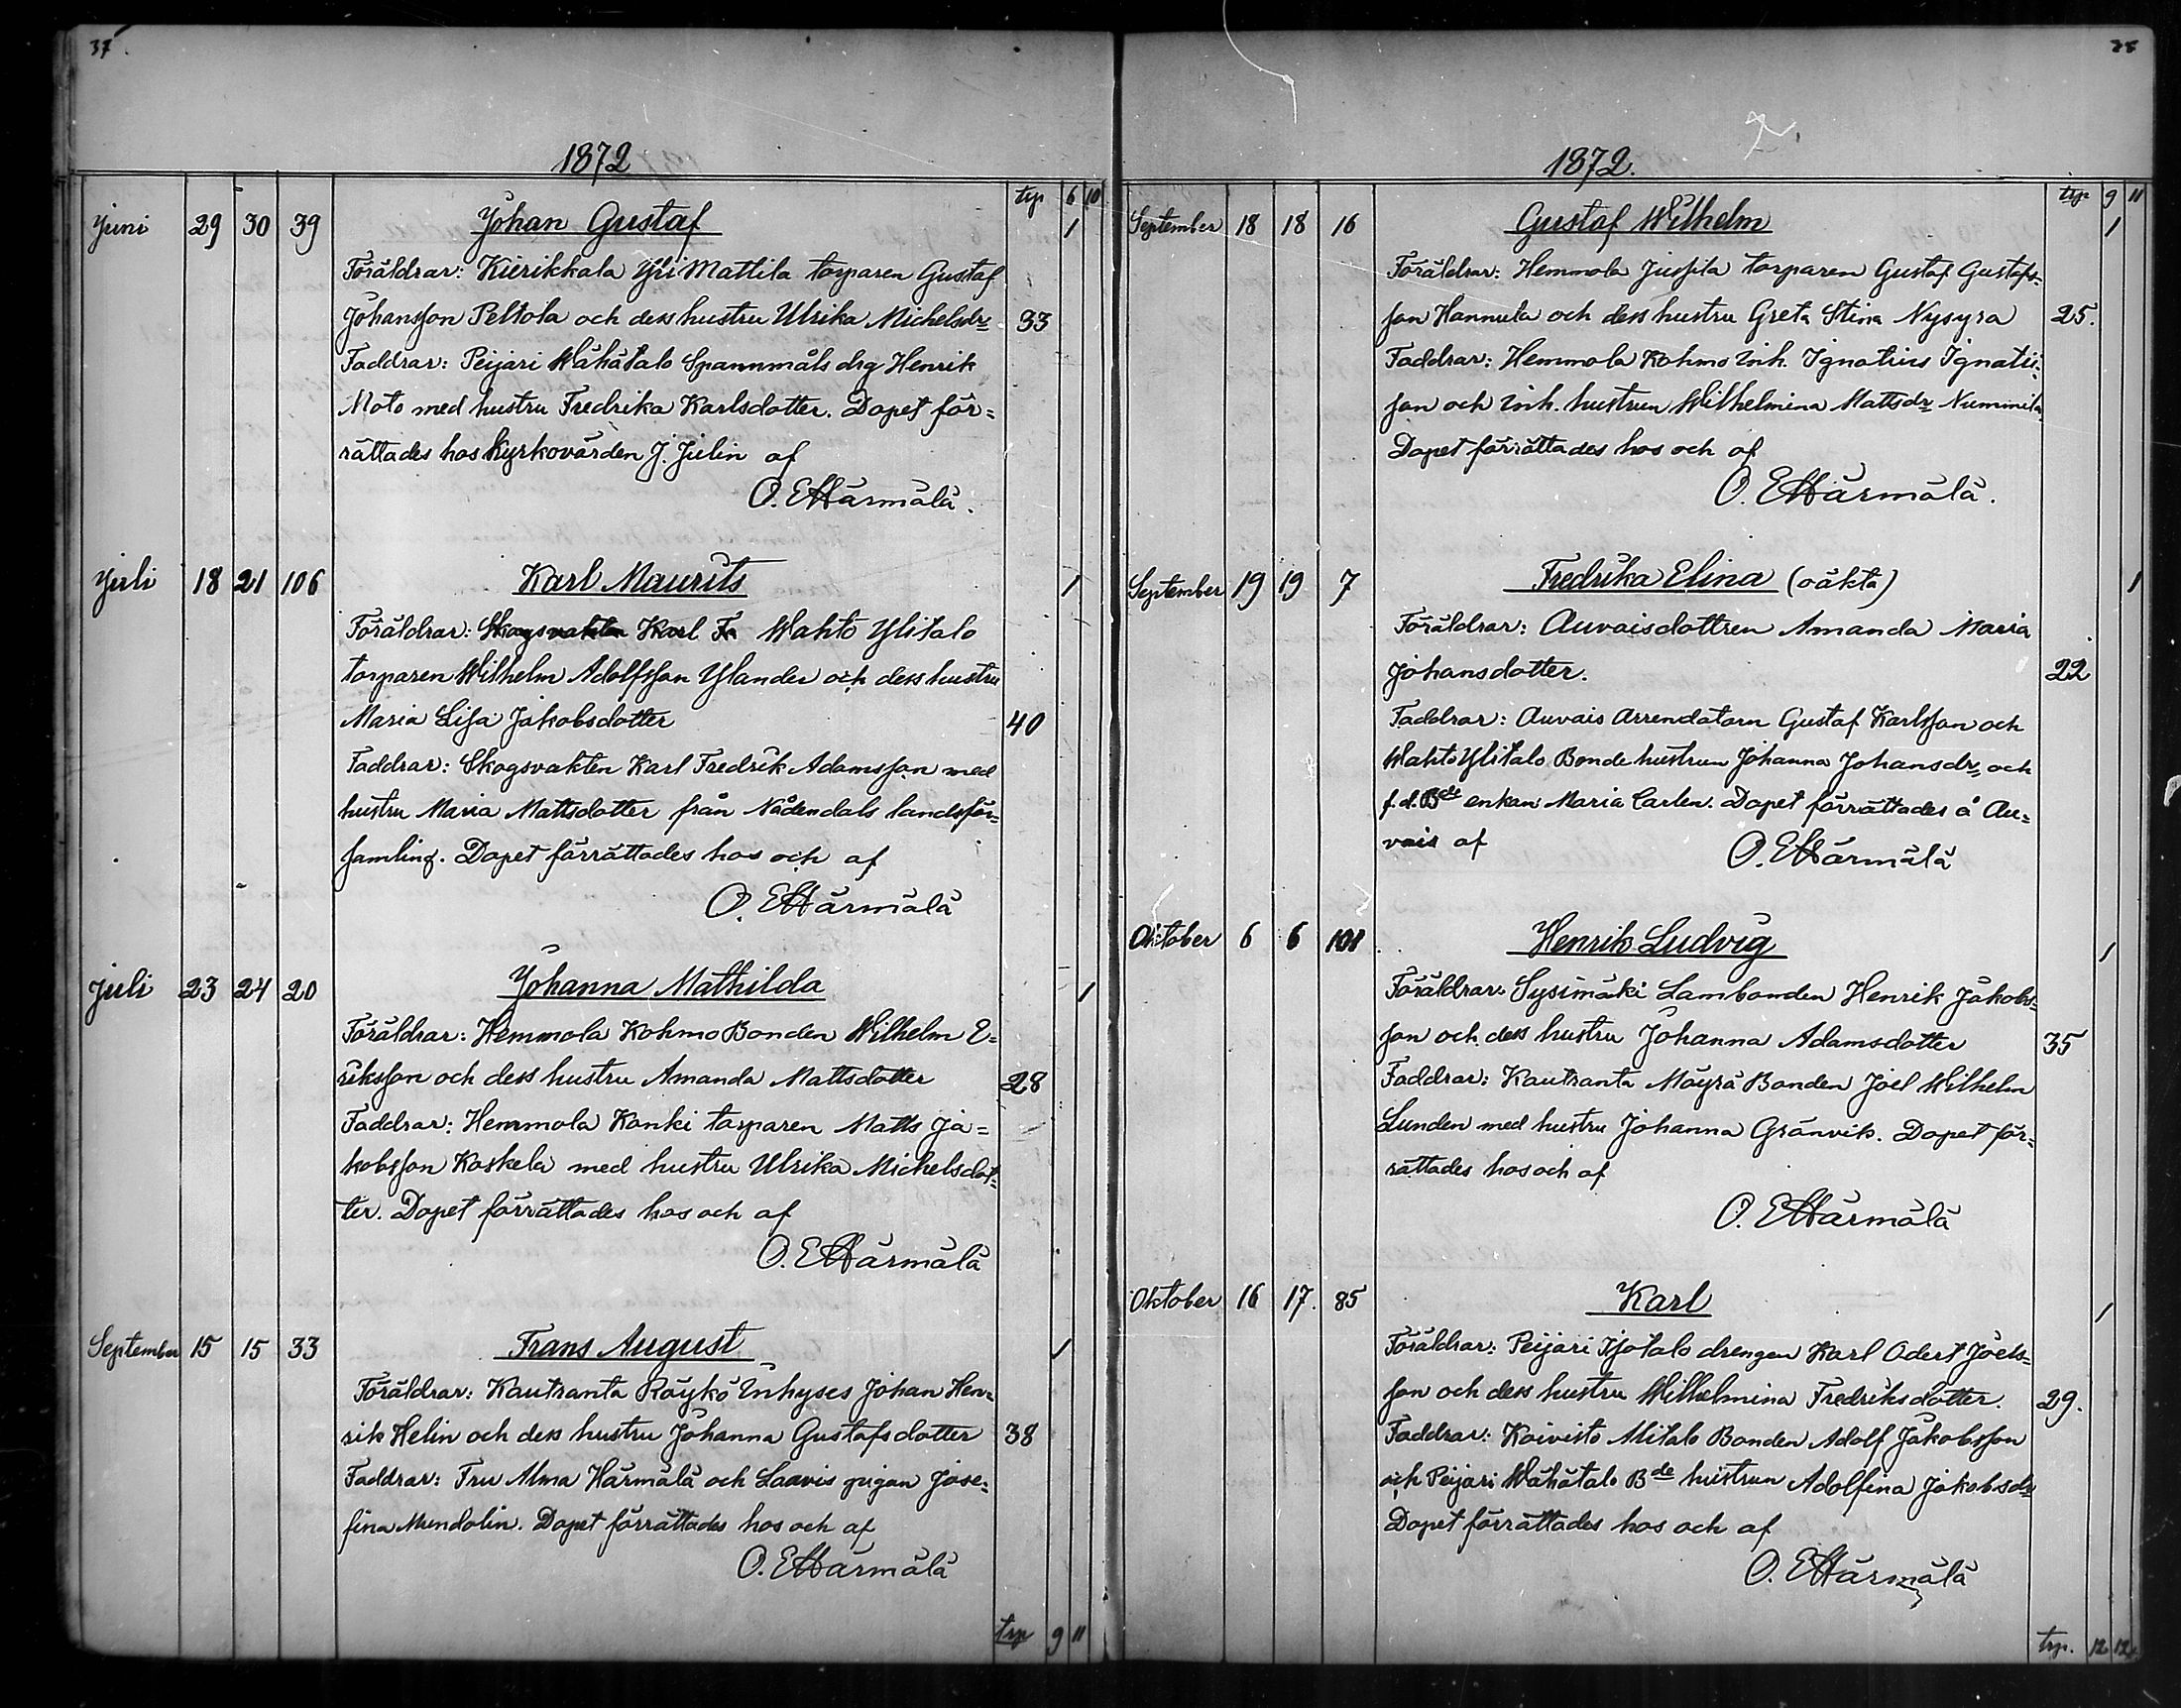 37.
1872
trp 6 10
Juni 29 30 39 Johan Gustaf 1
Föräldrar: Kierikkala Yli Mattila torparen Gustaf
Johansson Peltola och dess hustru Ulrika Michelsdr 33
Faddrar: Peijari Wähätalo Spannmåls drg Henrik
Moto med hustru Fredrika Karlsdotter. Dopet för=
rättades hos Kyrkovärden J. Julin af
O. E Härmälä.
Juli 18 21 106 Karl Maurits 1
Föräldrar: Skogsvakten Karl Fr Wahto Ylitalo
torparen Wilhelm Adolfsson Ylander och dess hustru
Maria Lisa Jakobsdotter 40
Faddrar: Skogsvakten Karl Fredrik Adamsson med
hustru Maria Mattsdotter från Nådendals landsför=
samling. Dopet förrättades hos och af
O. E Härmälä
Juli 23 24 20 Johanna Mathilda 1
Föräldrar: Hemmola Kohmo Bonden Wilhelm E=
riksson och dess hustru Amanda Mattsdotter 28
Faddrar: Hemmola Konki torparen Matts Ja=
kobsson Koskela med hustru Ulrika Michelsdot=
ter. Dopet förrättades hos och af
O. E Härmälä
September 15 15 33 Frans August 1
Föräldrar: Kautranta Röykö Inhyses Johan Hen=
rik Helin och dess hustru Johanna Gustafsdotter 38
Faddrar: Fru Alma Härmälä och Laavis pigan Jose=
fina Mendolin. Dopet förrättades hos och af
O. E Härmälä
trp 9 11
38
1872.
trp 9 11
September 18 18 16 Gustaf Wilhelm 1
Föräldrar: Hemmola Jussila torparen Gustaf Gustafs=
son Hannula och dess hustru Greta Stina Nysyra 25.
Faddrar: Hemmola Kohmo Inh. Ignatius Ignatii=
son och Inh. hustrun Wilhelmina Mattsdr Nummila
Dopet förrättades hos och af
O. E Härmälä.
September 19 19 7 Fredrika Elina (oäkta) 1
Föräldrar: Auvaisdottren Amanda Maria
Johansdotter. 22
Faddrar: Auvais Arrendatorn Gustaf Karlsson och
Wahto Ylitalo Bonde hustrun Johanna Johansdr, och
f.d. Bde enkan Maria Carlen. Dopet förrättades å Au=
vais af
O. E Härmälä
Oktober 6 6 101 Henrik Ludvig 1
Föräldrar: Sysimäki Lambonden Henrik Jakobs=
son och dess hustru Johanna Adamsdotter 35
Faddrar: Kautranta Mäyrä Bonden Joel Wilhelm
Lunden med hustru Johanna Grönvik. Dopet för=
rättades hos och af
O. E Härmälä
Oktober 16 17. 85 Karl 1
Föräldrar: Peijari Isotalo drengen Karl Odert Joels=
son och dess hustru Wilhelmina Fredriksdotter. 29.
Faddrar: Koivisto Alitalo Bonden Adolf Jakobsson
och Peijari Wähätalo Bde hustrun Adolfina Jakobsdr
Dopet förrättades hos och af
O. E Härmälä
trp. 12 12